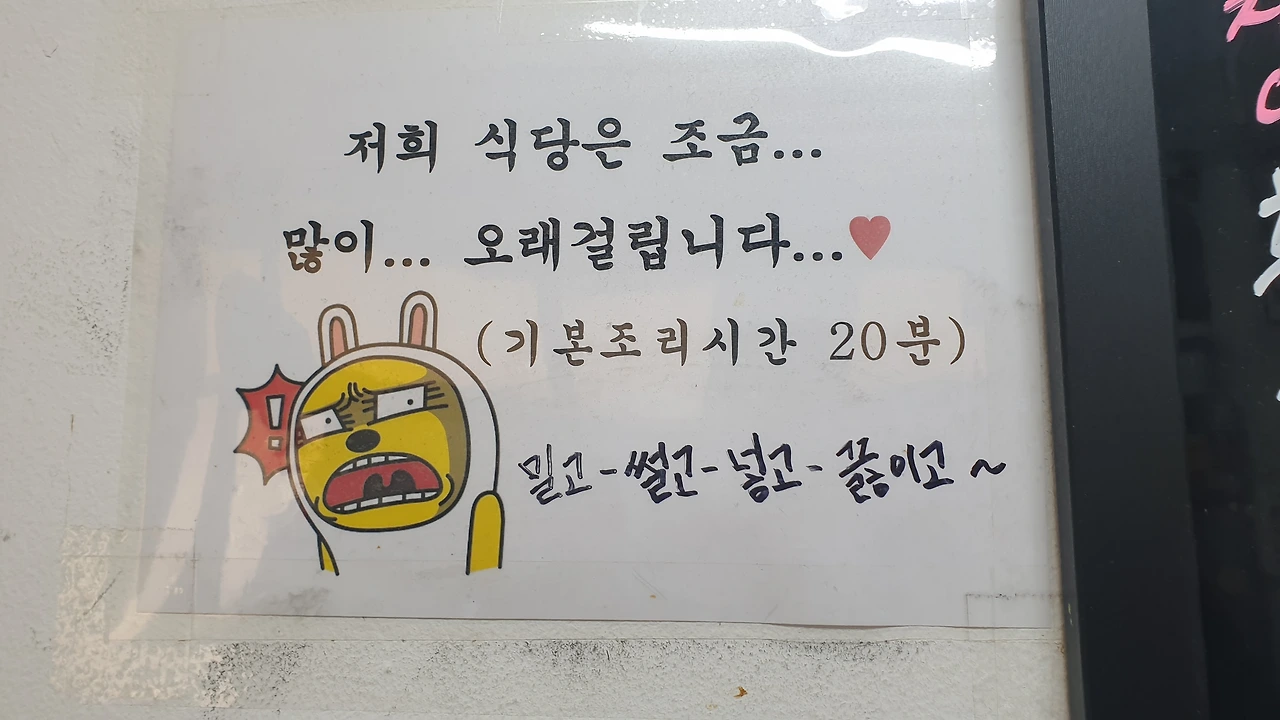 저희 식당은 조금...
많이... 오래걸립니다...♥
(기본조리시간 20분)
!
밀고-썰고-넣고-끓이고~